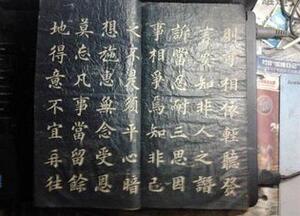 則可相依輕聽發
言安知非人之譖
訴當忍耐三思因
事相爭焉知非己
之不是須平心暗
想施惠無念受恩
莫忘凡事當留餘
地得意不宜再往